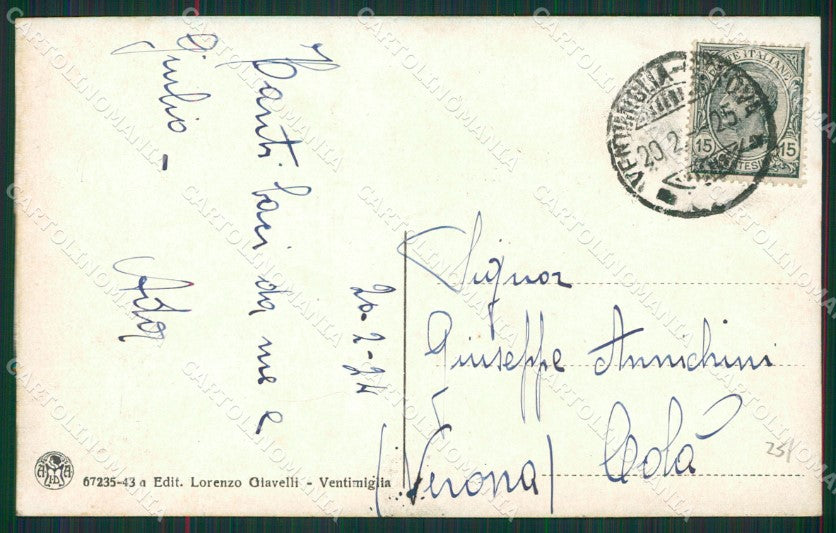 20-2-24
Tanti baci da me e
Giulio -
Ada
Signor
Giuseppe Annichini
Colà
(Verona)
VENTIMIGLIA-GENOVA
20.2. 25
POSTE ITALIANE
15 15
CENTESIMI
67235-43 a Edit. Lorenzo Giavelli - Ventimiglia
25/
CARTOLINOMANIA